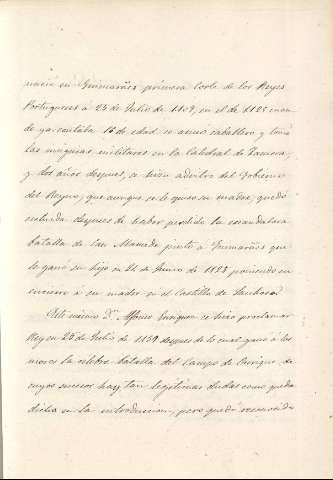 nació en Guimarães primera Corte de los Reyes
Portugueses á 25 de Julio de 1109, en el de 1125 cuan
do ya contába 16 de edad se armo caballero y tomó
las insignias militares en la Catedral de Zamora,
y dos años despues, se hizo adentro del Gobierno
del Reyno; que aunque se le opuso su madre, quedó
escluida despues de haber perdido la
batalla de San Mamede junto á Guimarães que
le ganó su hijo en 24 de Junio de 1128 poniendo en
encierro á su madre en el Castillo de
Este mismo Dn. Alfonso Enriquez se hizo proclamar
Rey en 25 de Julio de 1139 despues de lo cual ganó á los
moros la celebre batalla del Campo de Ourique, de
cuyos sucesos hay tan legitimas dudas como queda
dicho en la introduccion, pero quedó reconocido